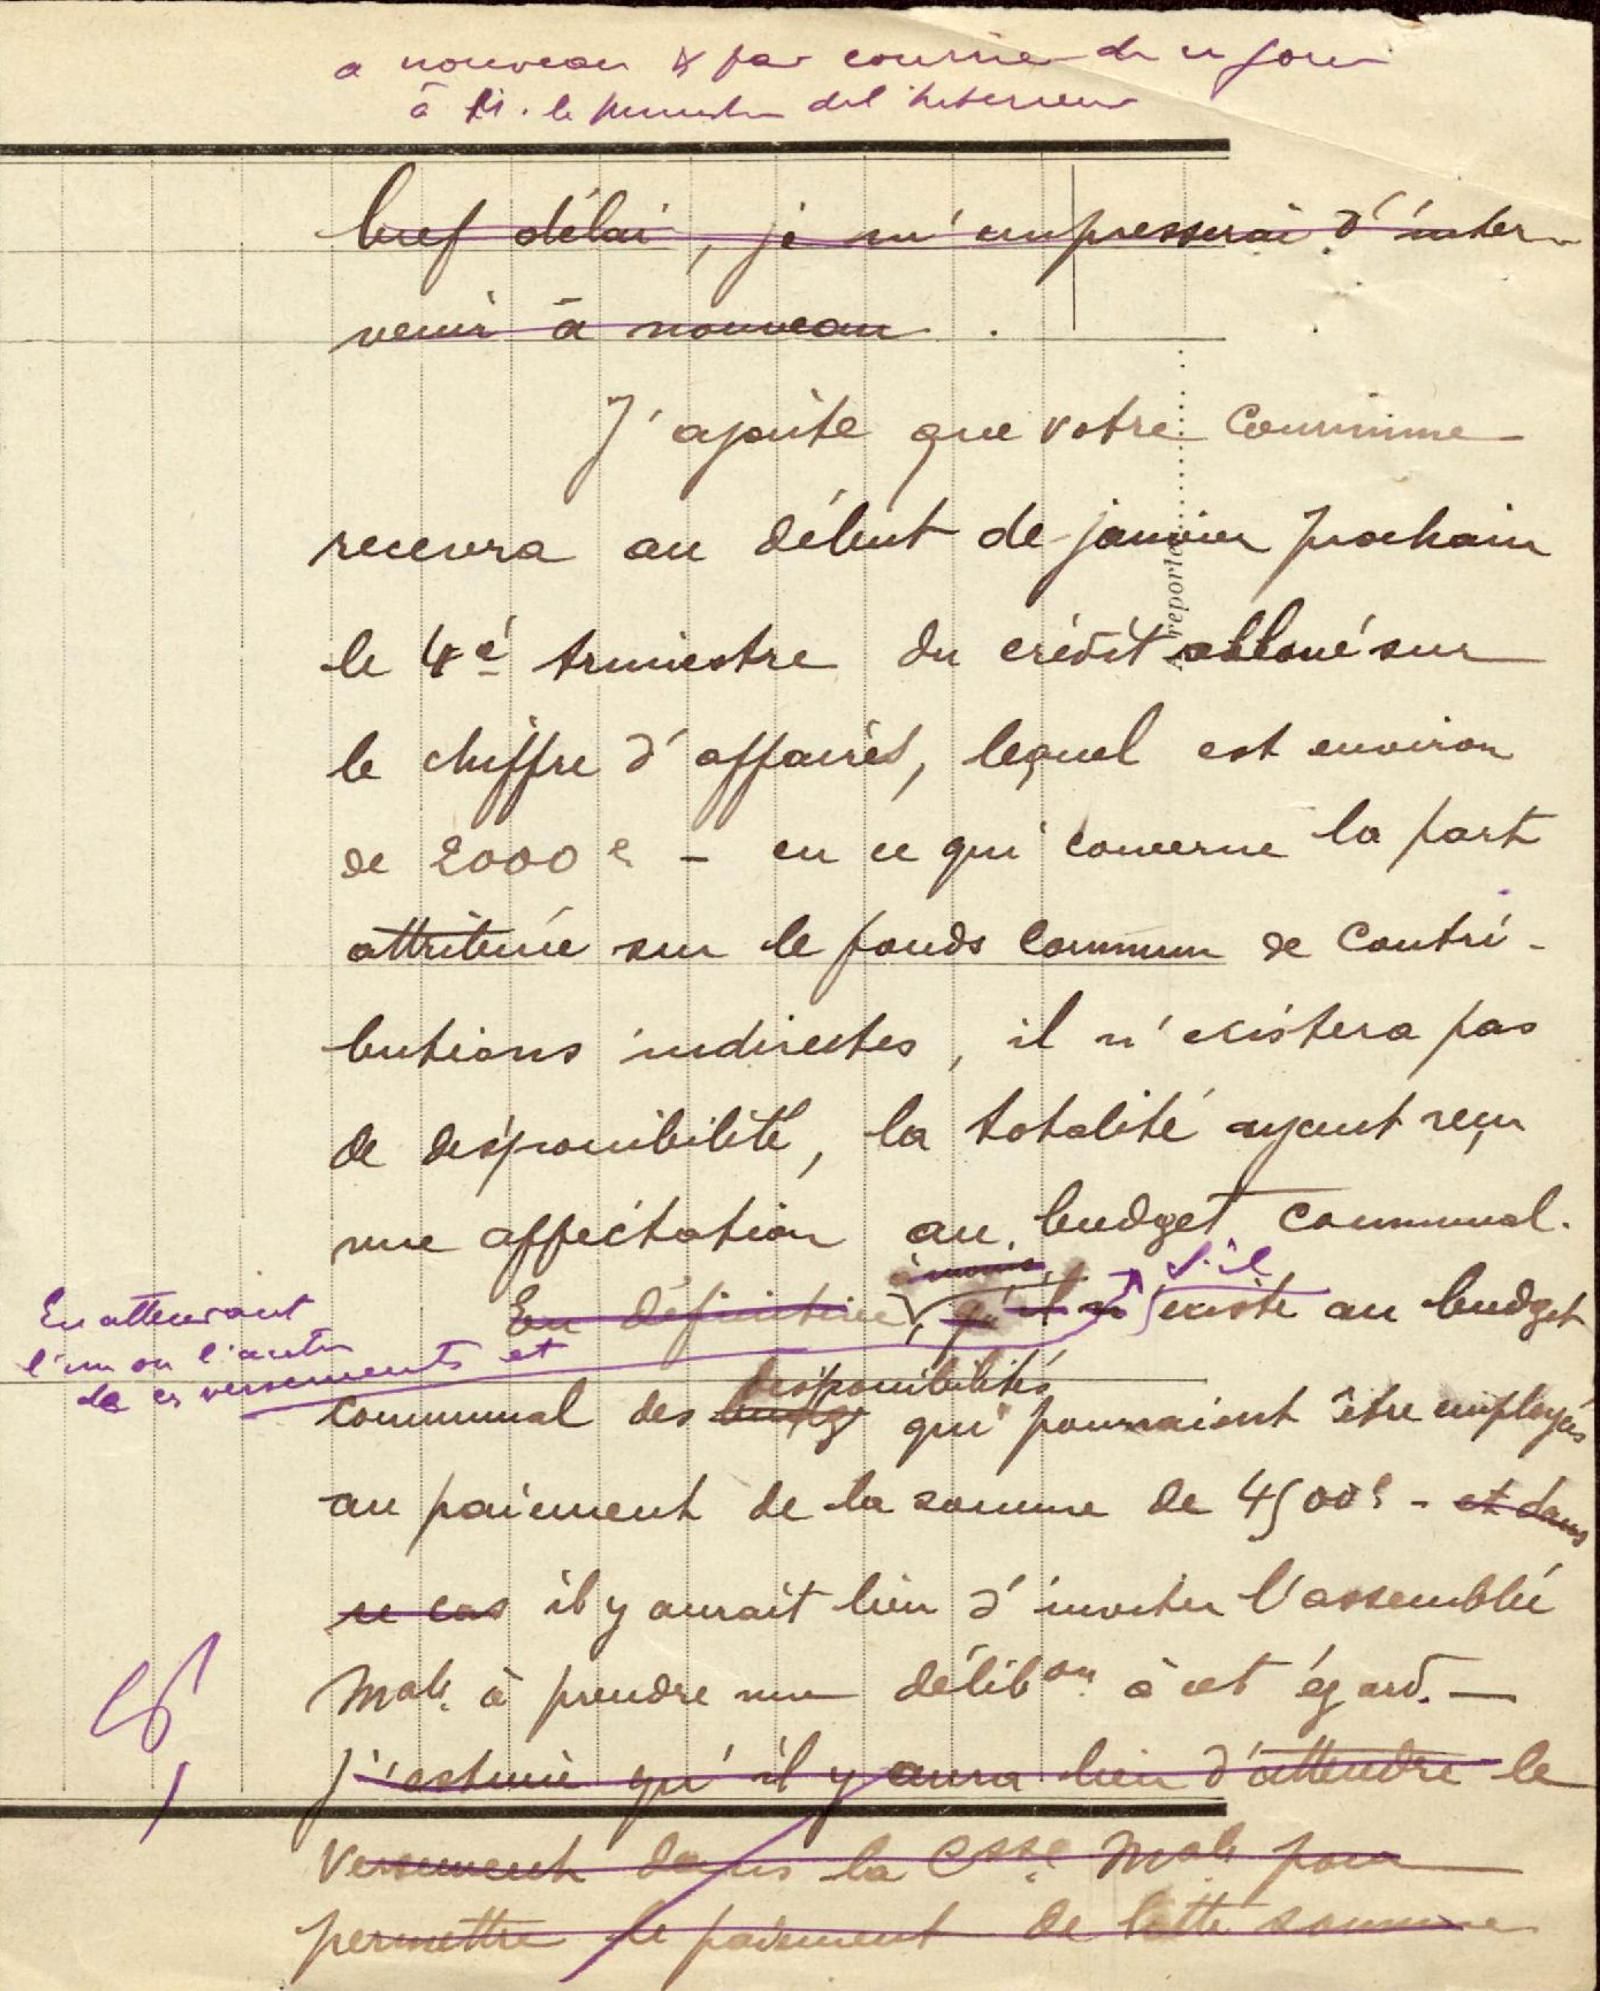 a nouveau par courrier de ce jour
à M. le Ministre de l'Intérieur
bref délai, je m'empresserai d'inter-
venir à nouveau.
J'ajoute que votre Commune
recevra au début de janvier prochain
le 4é trimestre du crédit alloué sur
le chiffre d'affaires, lequel est environ
de 2000 f - en ce qui concerne la part
attribuée sur le fonds commun de Contri-
butions indirectes, il n'existera pas
de disponibilité, la totalité ayant reçu
une affectation au budget communal.
à moins s'il
En définitive, qu'il n'existe au budget
En attendant
l'un ou l'autre
de ces versements et
disponibilités
communal des budg qui pourraient être employés
au paiement de la somme de 4500 f - et dans
ce cas il y aurait lieu d'inviter l'assemblée
Male à prendre une délibon à cet égard. —
J'estime qu'il y aura lieu d'attendre le
Versement dans la Csse Male pour
permettre le paiement de cette somme
A reporter